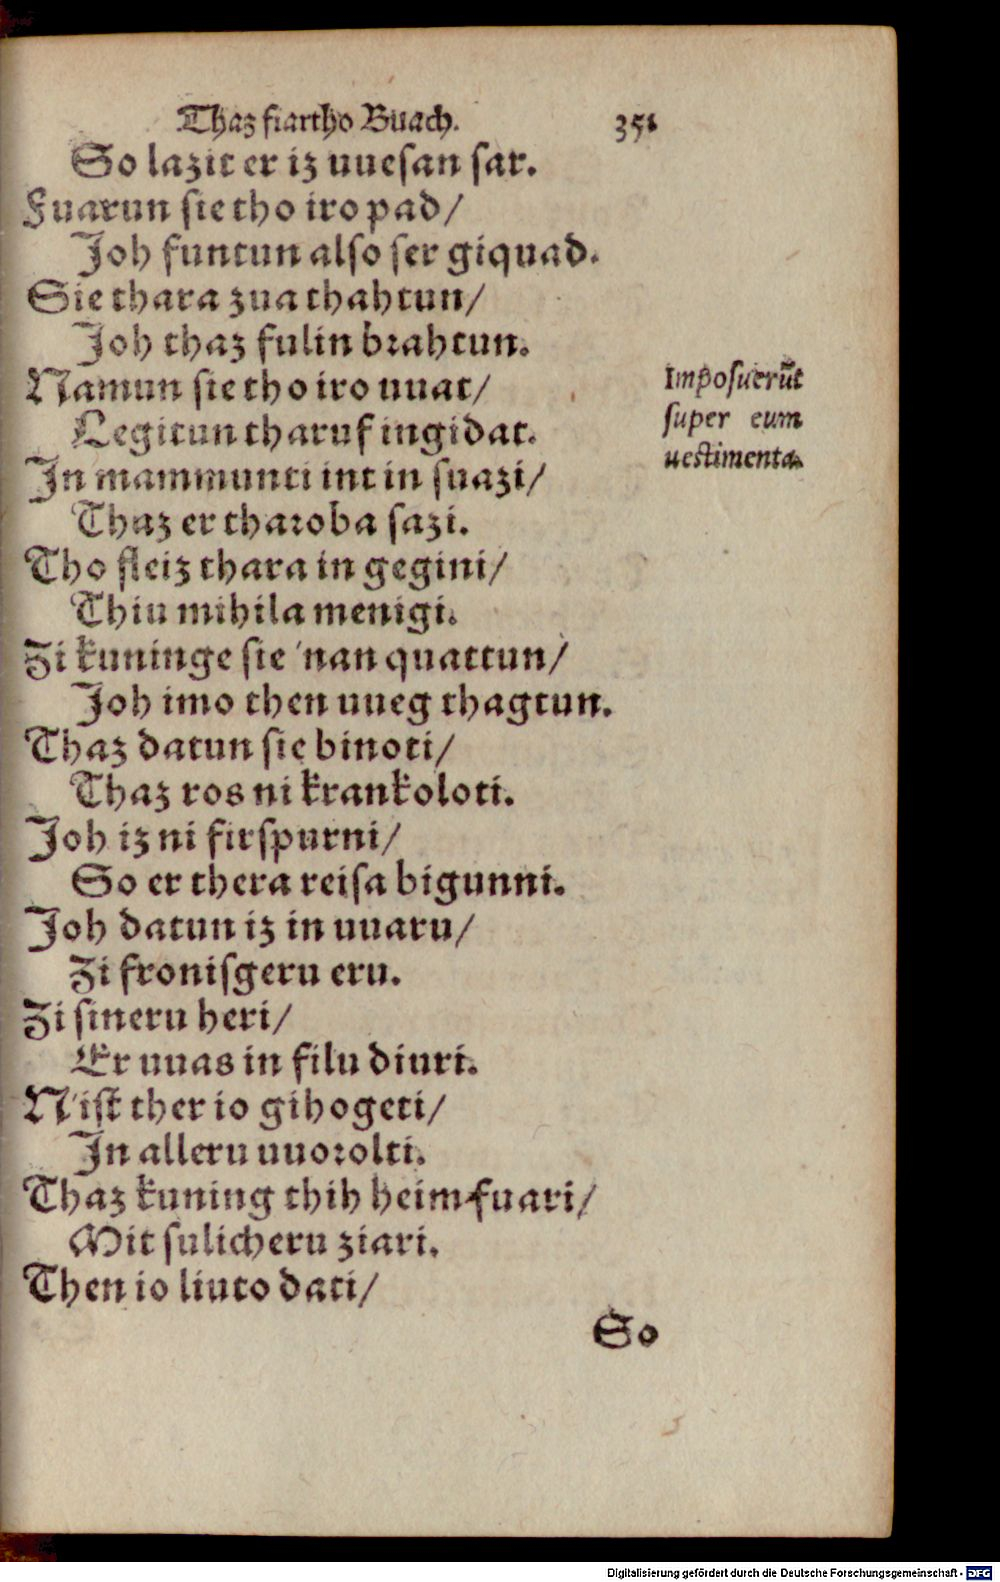 Thaz fiartho Buach. 351
So lazit er iz uuesan sar.
Fuarun sie tho iro pad/
Joh funtun also ser giquad.
Sie thara zua thahtun/
Joh thaz fulin brahtun.
Namun sie tho iro uuat/
Legitun tharuf in gidat.
In mammunti int in suazi/
Thaz er tharoba sazi.
Tho fleiz thara in gegini/
Thiu mihila menigi.
Zi kuninge sie 'nan quattun/
Joh imo then uueg thagtun.
Thaz datun sie binoti/
Thaz ros ni krankoloti.
Joh iz ni firspurni/
So er thera reisa bigunni.
Joh datun iz in uuaru/
Zi fronisgeru eru.
Zi sineru heri/
Er uuas in filu diuri.
N'ist ther io gihogeti/
In alleru uuorolti.
Thaz kuning thih heimfuari/
Mit sulicheru ziari.
Then io liuto dati/
So
Imposuerūt
super eum
uestimenta.
Digitalisierung gefördert durch die Deutsche Forschungsgemeinschaft - DFG